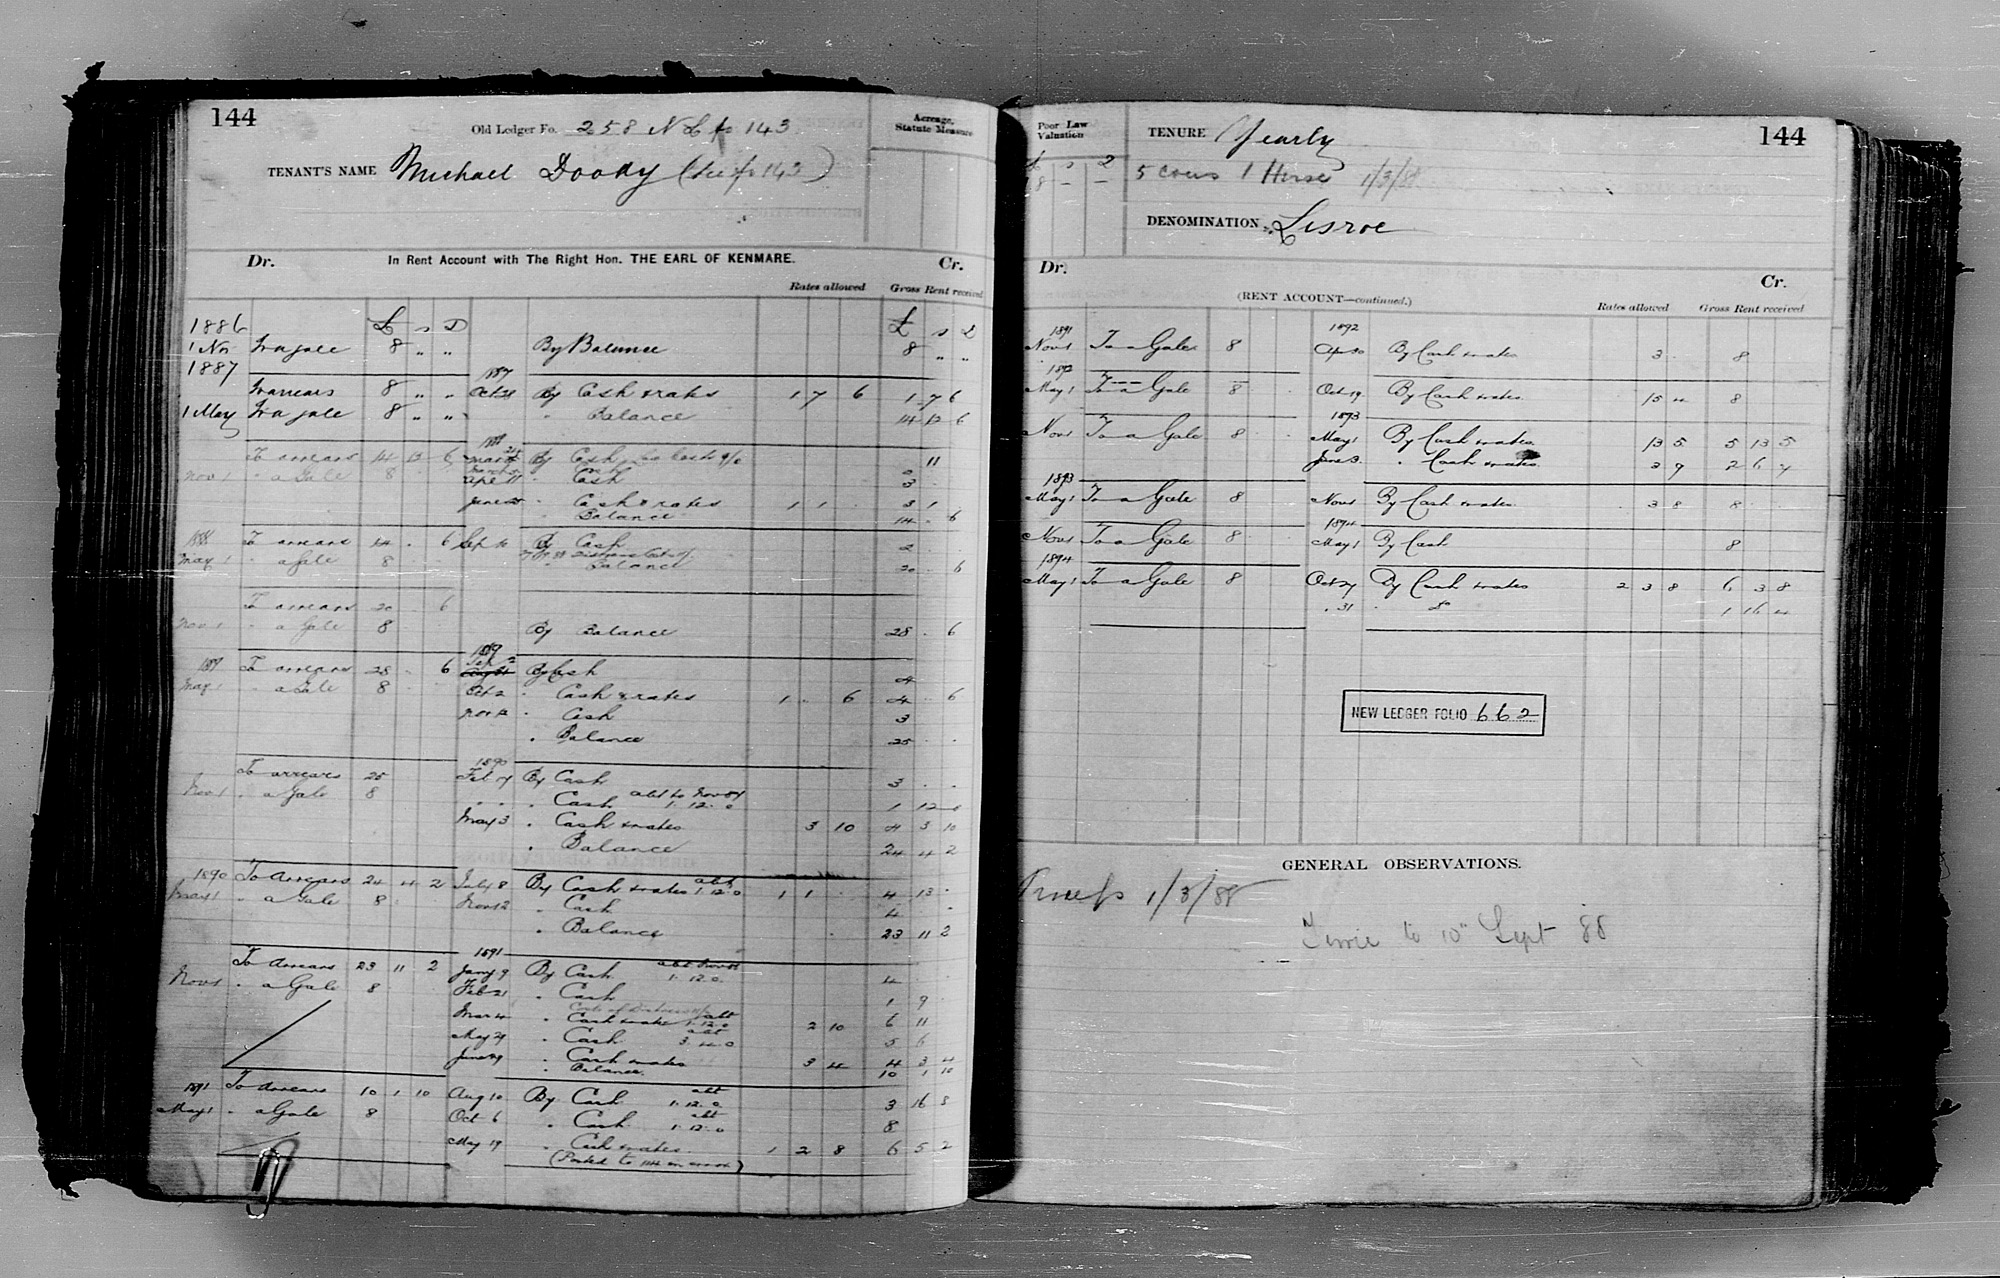 144
Old Ledger Fo. 258 N L fo 143
Acreage, Statute Measure
TENANT'S NAME Michael Doody (See fo 143)
Dr. In Rent Account with The Right Hon. THE EARL OF KENMARE. Cr.
Rates allowed Gross Rent received
1886 £ s D £ s D
1 Nov To a gale 8 " " By Balance 8 " "
1887 1887
To arrears 8 " " Oct 28 By Cash & rates 1 7 6 1 7 6
1 May To a gale 8 " " " Balance 14 12 6
1888
To arrears 14 12 6 By Cash 11
Nov 1 " a Gale 8 Apl 11 " Cash 3
June " Cash & rates 1 1 3 1
Balance 14 . 6
1888 To arrears 14 . 6 Sep 10 By Cash 2
May 1 " a Gale 8 " Balance 20 . 6
To arrears 20 . 6
Nov 1 " a Gale 8 By Balance 28 . 6
1889
1889 To arrears 28 . 6 Sep 2 By Cash 4
May 1 " a Gale 8 Oct 2 " Cash & rates 1 . 6 4 . 6
Nov 12 " Cash 3
" Balance 25 . .
1890
To arrears 25 Feb 17 By Cash 3 . .
Nov 1 " a Gale 8 " " " Cash abt to Nov 89 1.12.0 1 12 0
May 3 " Cash & rates 3 10 4 3 10
" Balance 24 4 2
1890 To Arrears 24 4 2 July 8 By Cash & rates abt 1.12.0 1 1 . 4 13 .
May 1 " a Gale 8 Nov 12 " Cash 4 . .
" Balance 23 11 2
1891
To Arrears 23 11 2 Jany 9 By Cash 1.12.0 4
Nov 1 " a Gale 8 Feb 21 " Cash 1 9
Mar 4 " Cash & rates abt 1.12.0 2 10 6 11
May 29 " Cash abt 3.4.0 5 6
June 29 " Cash & rates 3 4 4 3 4
" Balance 10 1 10
1891 To Arrears 10 1 10 Aug 10 By Cash abt 1.12.0 3 16 8
May 1 " a Gale 8 Oct 6 " Cash abt 1.12.0 8
May 19 " Cash & rates 1 2 8 6 5 2
(Posted to 144 in error)
Poor Law Valuation
TENURE Yearly
144
£ s D
18 – –
5 cows 1 Horse 1/3/88
DENOMINATION, Lisroe
Dr. Cr.
(RENT ACCOUNT—continued.) Rates allowed Gross Rent received
1891 1892
Nov 1 To a Gale 8 Apr 30 By Cash & rates 3 . 8
1892
May 1 To a Gale 8 Oct 19 By Cash & rates 15 4 8
1893
Nov 1 To a Gale 8 May 1 By Cash & rates 13 5 5 13 5
June 3 " Cash & rates 3 9 2 6 7
1893
May 1 To a Gale 8 Nov 1 By Cash & rates 3 8 8
1894
Nov 1 To a Gale 8 May 1 By Cash 8
1894
May 1 To a Gale 8 Oct 27 By Cash & rates 2 3 8 6 3 8
" 31 " do 1 16 4
NEW LEDGER FOLIO 662
GENERAL OBSERVATIONS.
1/3/88
to 10" Sept 88